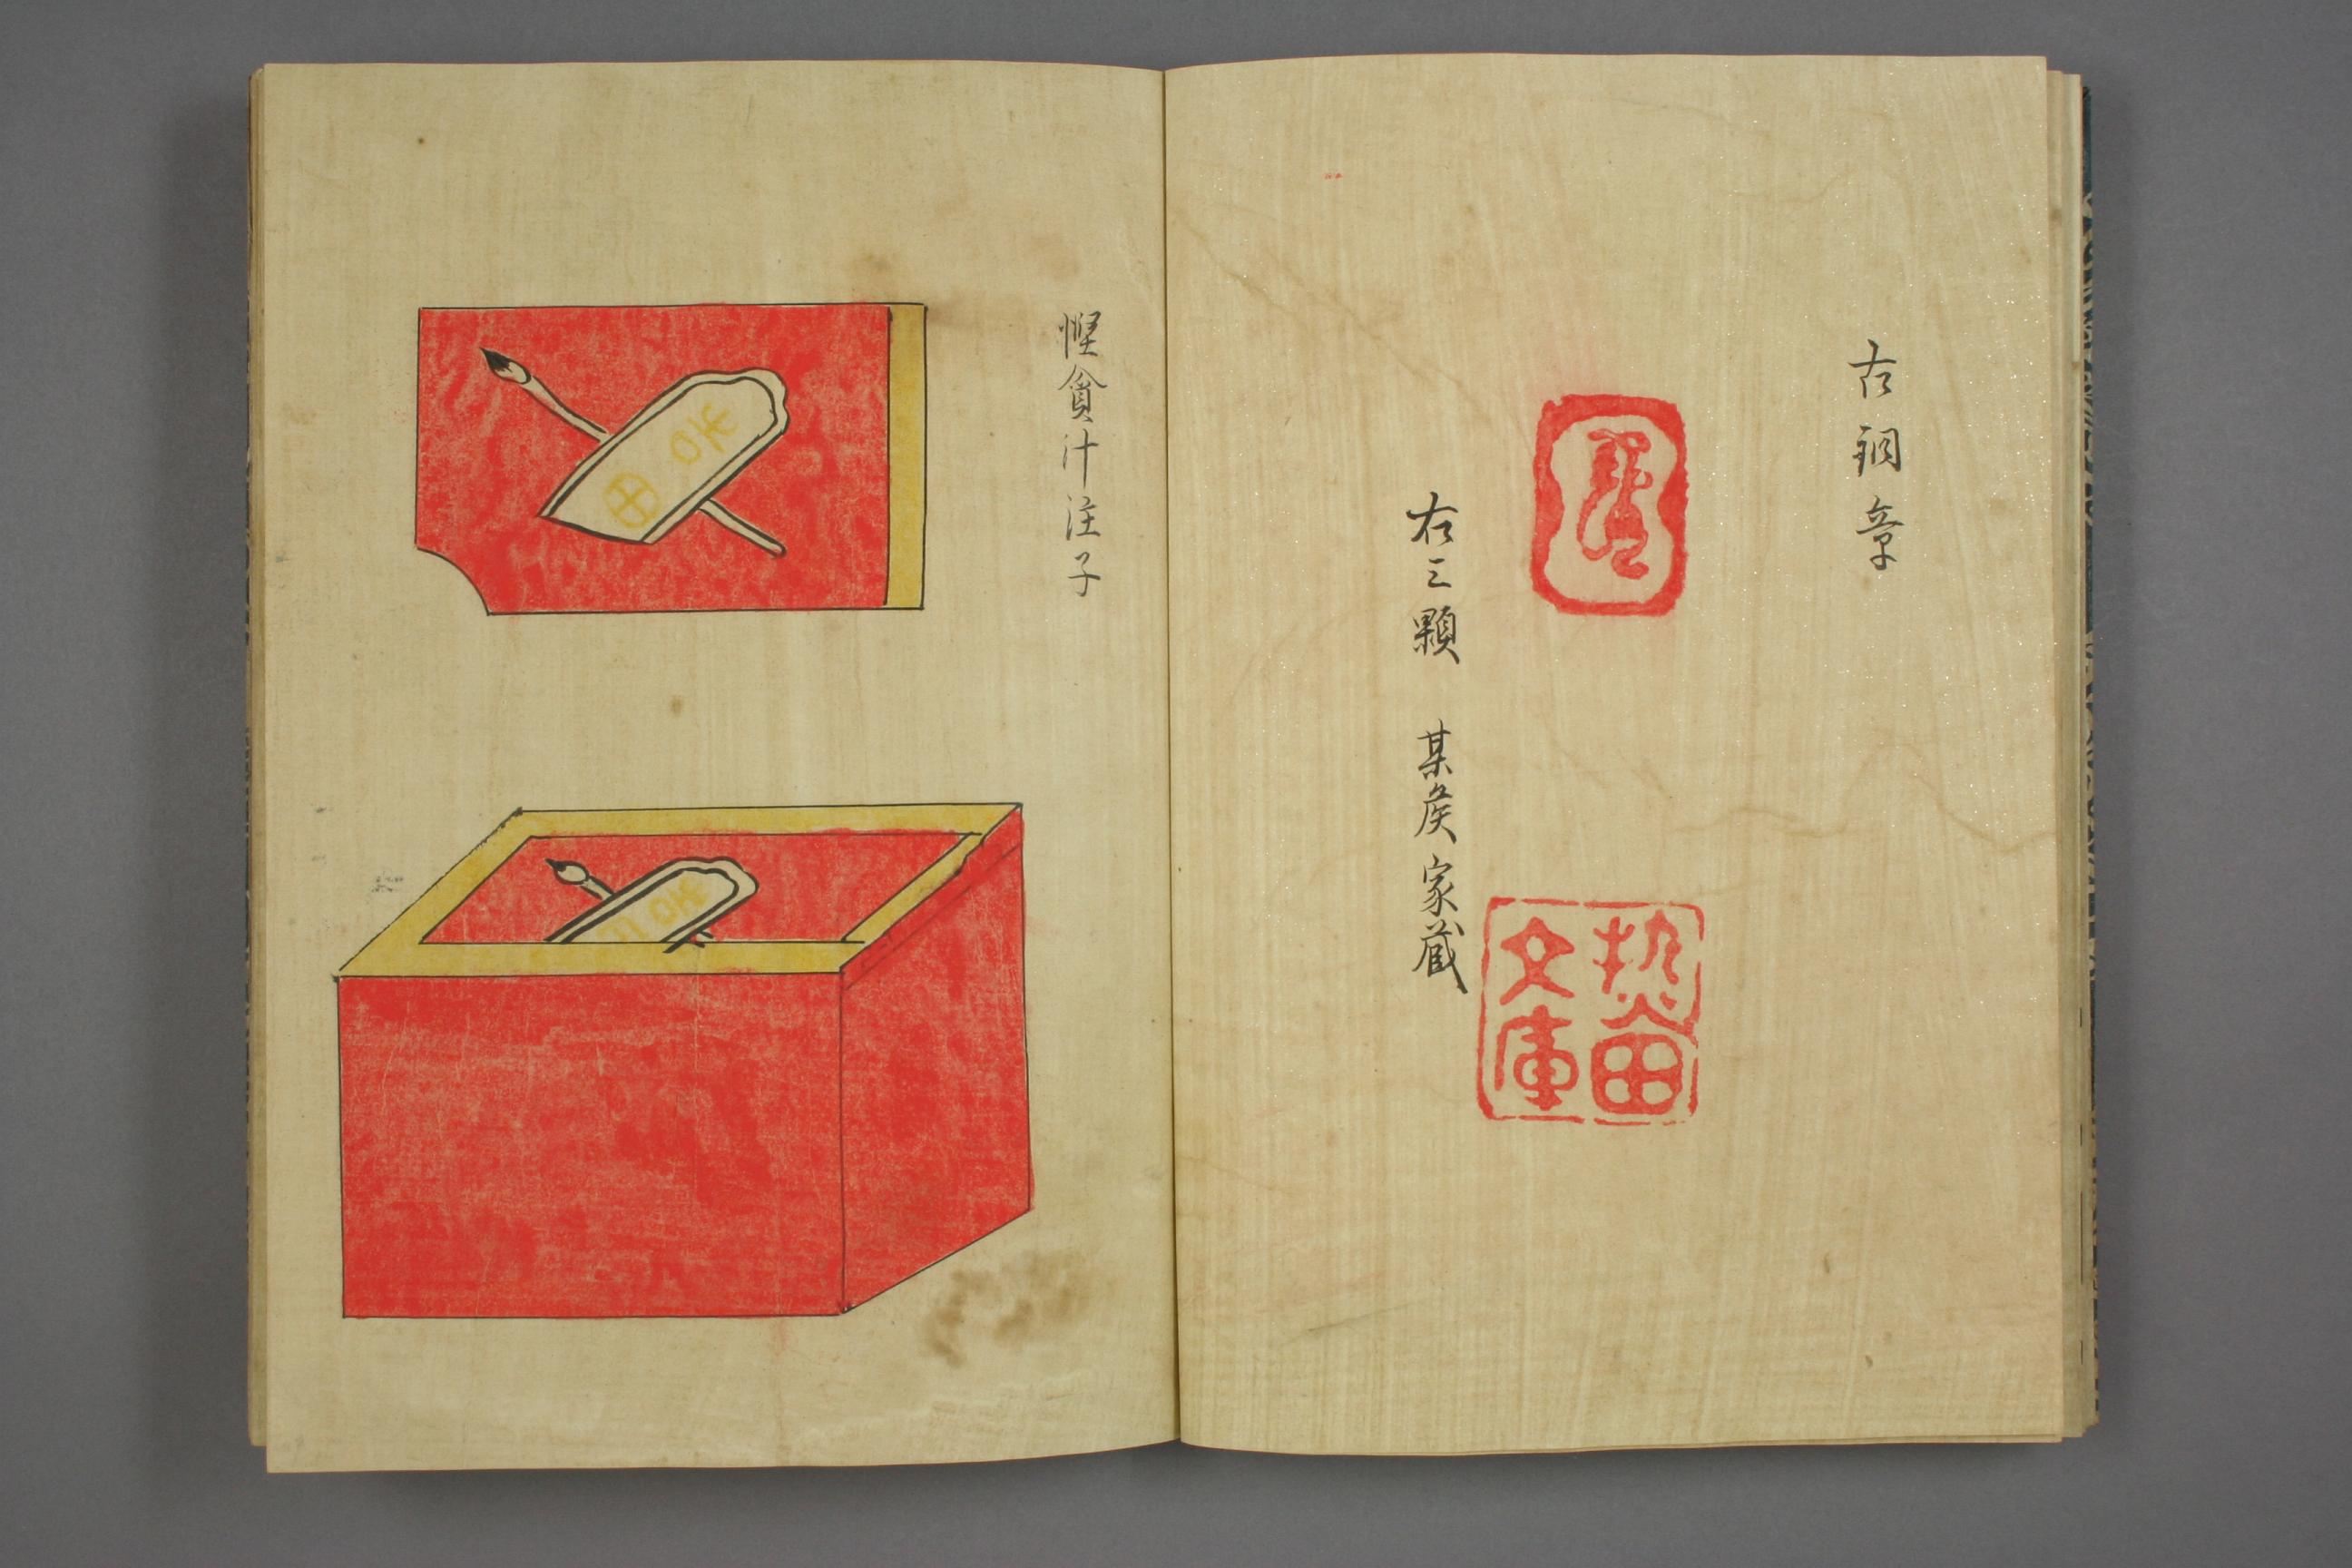 古銅章
右三顆 某侯家蔵
熱田文庫
慳貪汁注子